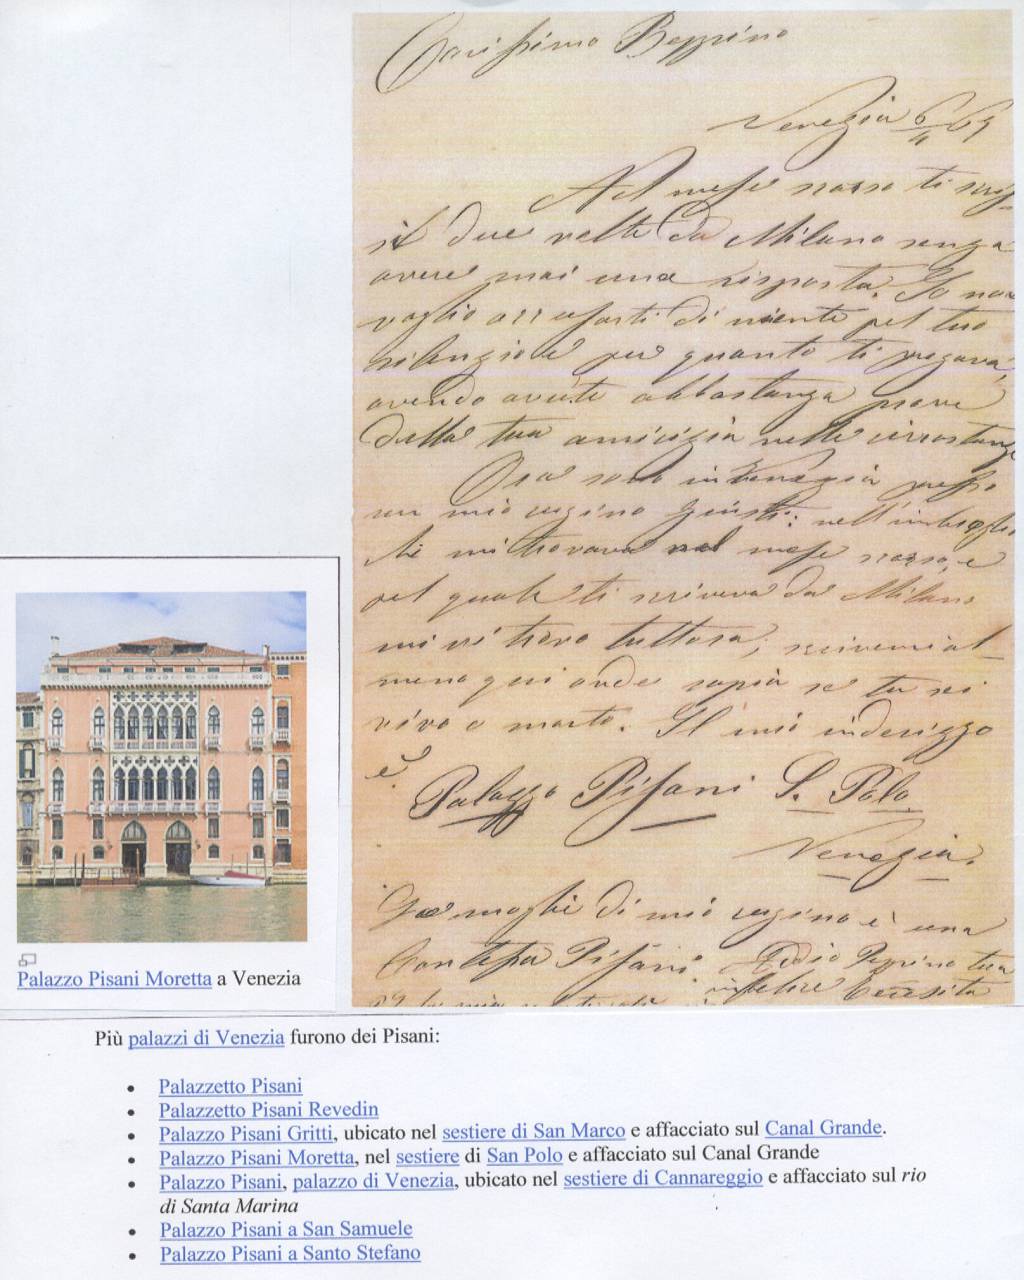 Carissimo Beppino
Venezia 6/4 69
Nel mese scorso ti scris-
si due volte da Milano senza
avere mai una risposta. Io non
voglio arrafarti di niente pel tuo
silenzio e per quanto ti pregava,
avendo avute abbastanza prove
della tua amicizia nelle circostanze
Ora sono in Venezia presso
un mio cugino Giusti: nell'imbroglio
che mi trovava nel mese scorso, e
pel quale ti scriveva da Milano
mi vi trovo tuttora; scrivemi al-
meno qui onde sapia se tu sei
vivo o morto. Il mio inderizzo
è
Palazzo Pisani S. Polo
Venezia.
La moglie di mio cugino è una
Contessa Pisani. Addio Beppino tua
infelice Teresita
Palazzo Pisani Moretta a Venezia
Più palazzi di Venezia furono dei Pisani:
• Palazzetto Pisani
• Palazzetto Pisani Revedin
• Palazzo Pisani Gritti, ubicato nel sestiere di San Marco e affacciato sul Canal Grande.
• Palazzo Pisani Moretta, nel sestiere di San Polo e affacciato sul Canal Grande
• Palazzo Pisani, palazzo di Venezia, ubicato nel sestiere di Cannareggio e affacciato sul rio
di Santa Marina
• Palazzo Pisani a San Samuele
• Palazzo Pisani a Santo Stefano